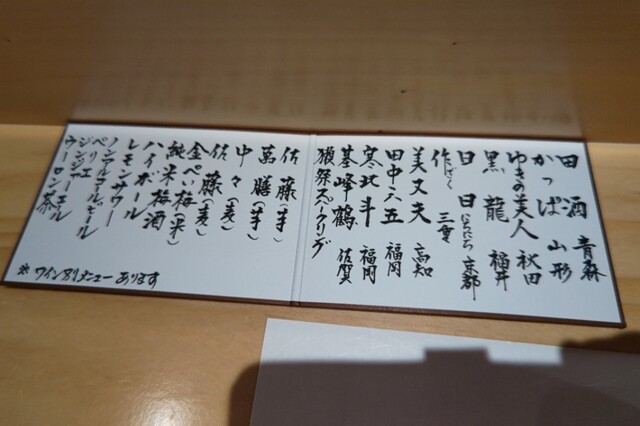 田酒 青森
かっぱ 山形
ゆきの美人 秋田
黒龍 福井
日日 にちにち 京都
作 ざく 三重
美丈夫 高知
田中六五 福岡
寒北斗 福岡
基峰鶴 佐賀
獺祭スパークリング
佐藤(芋)
萬膳(芋)
中々(麦)
佐藤(麦)
金ぺい梅(米)
純米梅酒
ハイボール
レモンサワー
ノンアルコールビール
ペリエ
ジンジャーエール
ウーロン茶
※ワイン別メニューあります